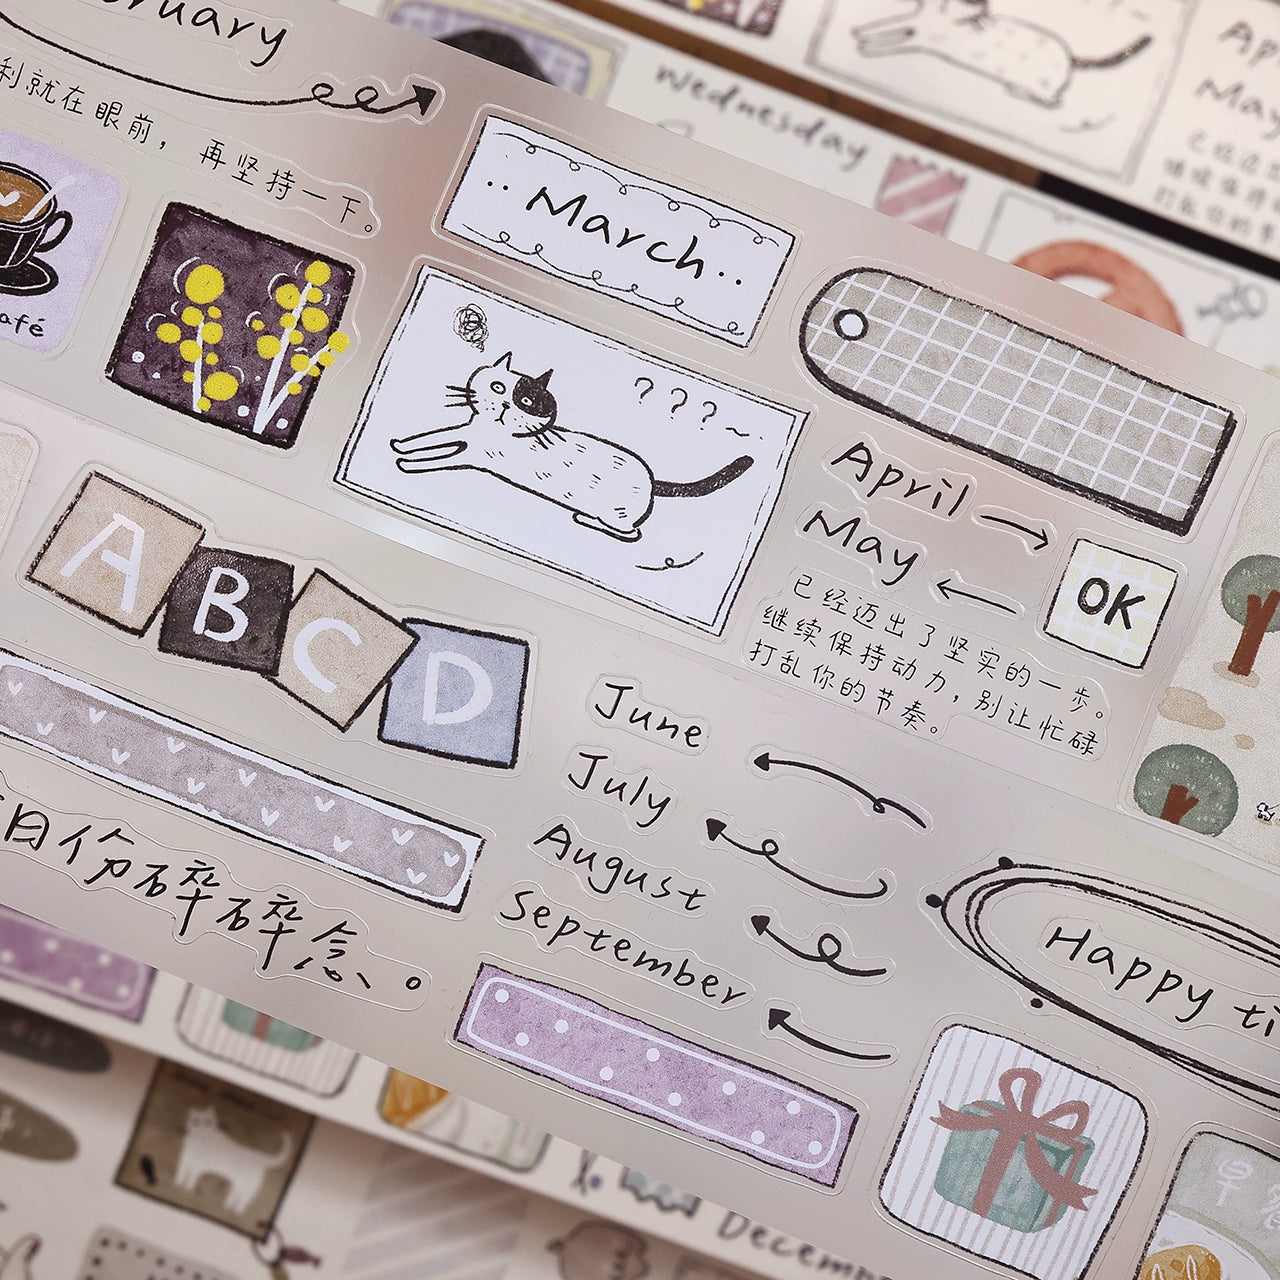 利就在眼前，再坚持一下。
afé
March
? ? ?
April
May
OK
已经迈出了坚实的一步。
继续保持动力，别让忙碌
打乱你的节奏。
A B C D
June
July
August
September
月份碎碎念。
Happy ti
Wednesday
Ap
May
早
Decemb